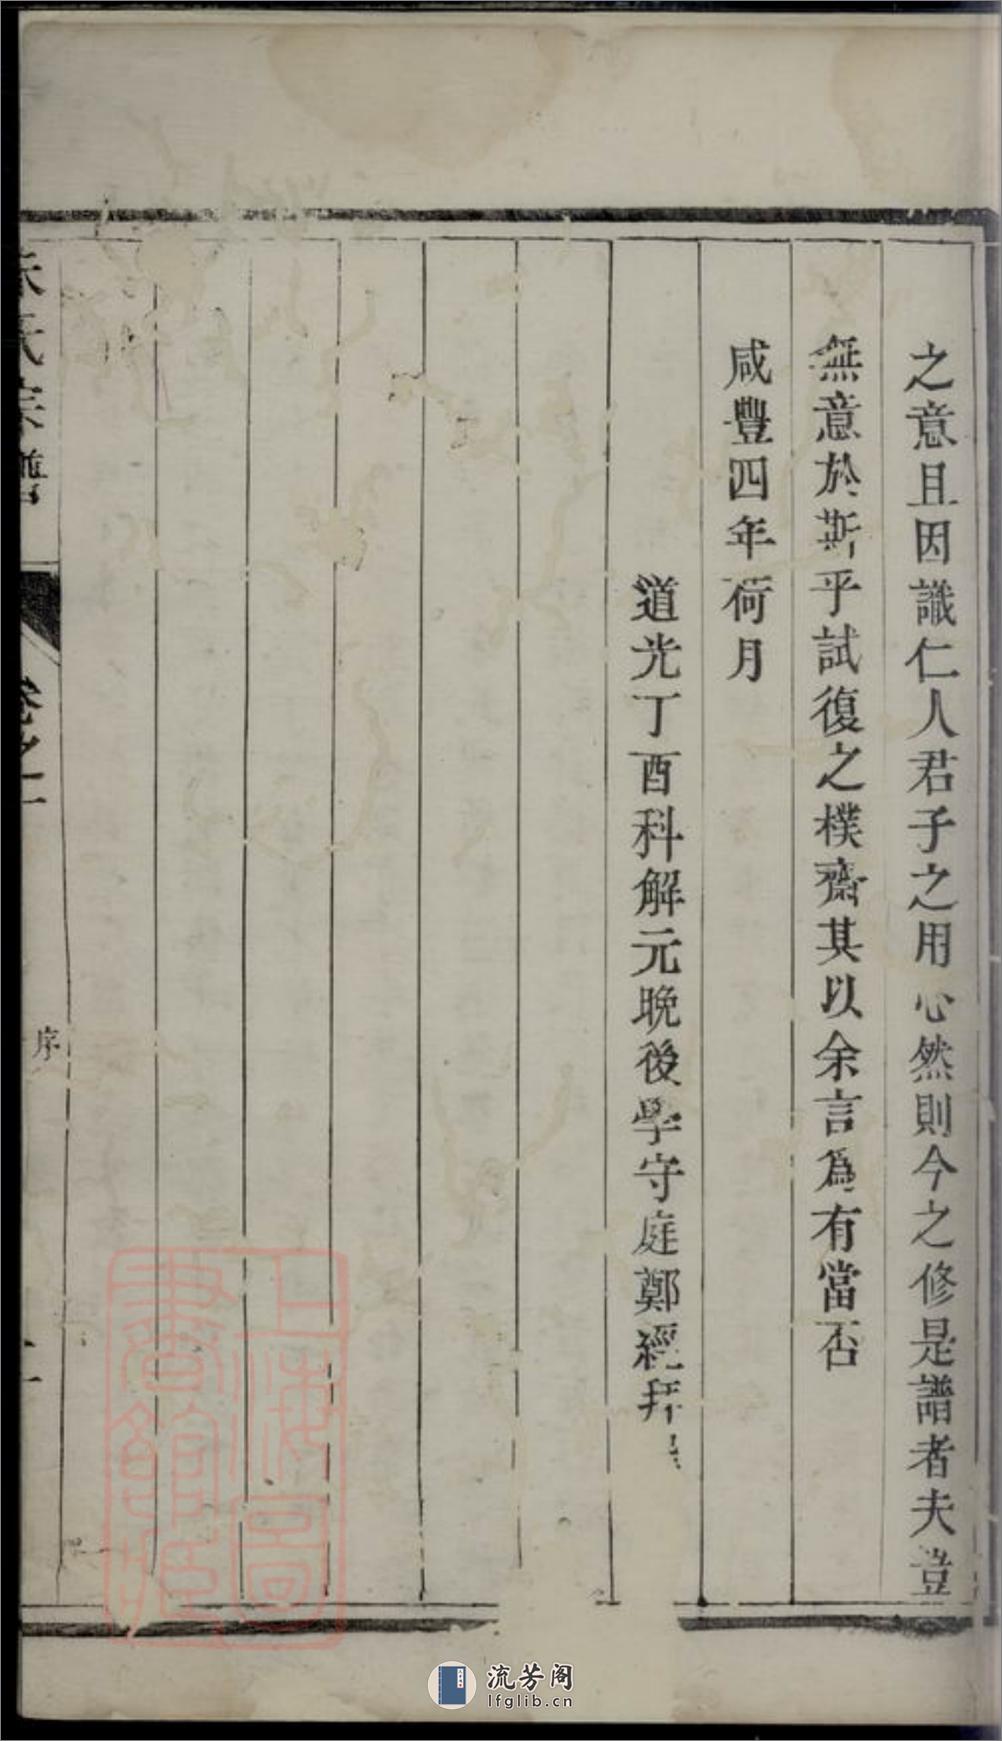 之意且因識仁人君子之用心然則今之修是譜者夫豈
無意於斯乎試復之樸齋其以余言為有當否
咸豐四年荷月
道光丁酉科解元晚後學守庭鄭經拜
氏宗譜
卷之一
序
上海圖書館藏
流芳阁
lfglib.cn